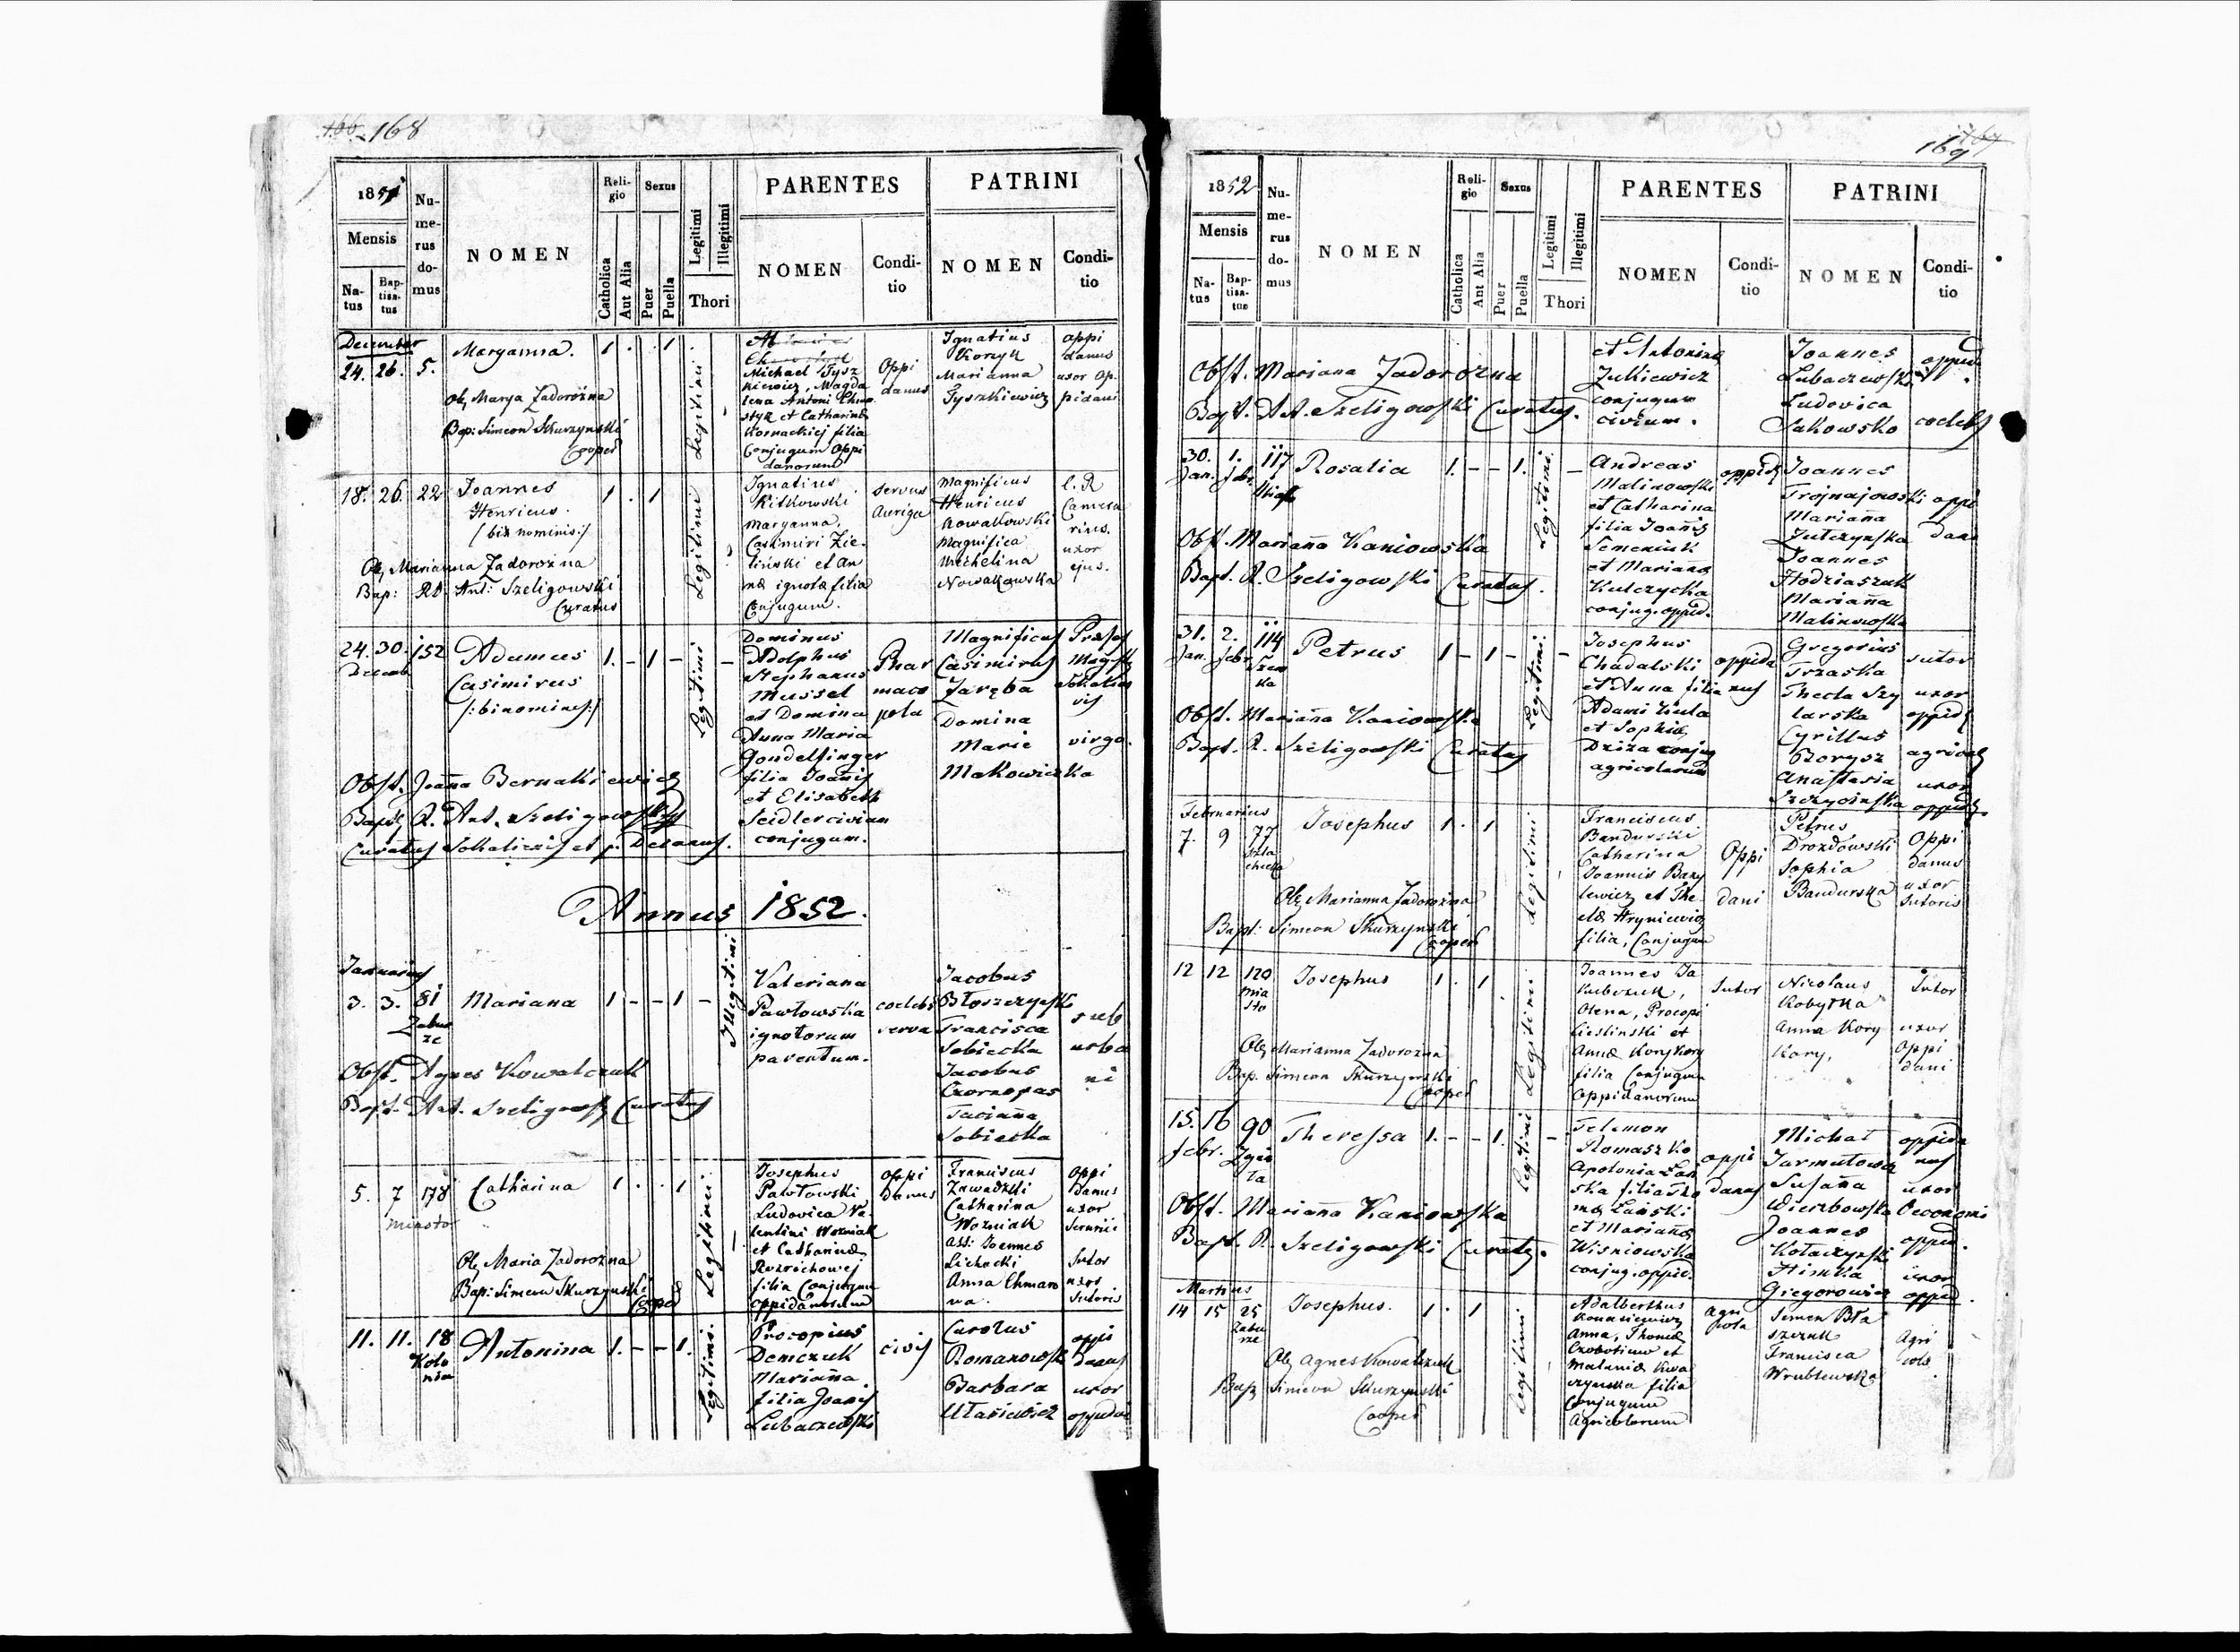 168
1851
Mensis
Na-
tus
Bap-
tisa-
tus
Nu-
me-
rus
do-
mus
NOMEN
Reli-
gio
Catholica
Aut Alia
Sexus
Puer
Puella
Legitimi
Illegitimi
Thori
PARENTES
NOMEN
Condi-
tio
PATRINI
NOMEN
Condi-
tio
December
24. 26. 5. Maryanna. 1 . . 1 .
Legitimi
Obs. Marya Zadorozna
Bap: Simeon Skurzynski
Cooper
Michael Tysz
kiewicz, Magda
lena Antoni Chwa
styk et Catharinæ
Kornackiej filia
Conjugum Oppi
danorum
Oppi
danus
Ignatius
Korzyk
Marianna
Tyszkiewicz
oppi
danus
uxor Op.
pidani
18. 26. 22 Joannes 1 . 1
Henricus.
/bix nominis:/
Legitimi
Obs. Marianna Zadorozna
Bap: Rd Ant: Szeligowski
Curatus
Ignatius
Kitkowski
Maryanna,
Casimiri Zie-
linski et An
næ ignotæ filia
Conjugum.
Servus
Auriga
Magnificus
Henricus
Nowakowski
Magnifica
Michelina
Nowakowska
C. R
Camera
rius.
uxor
ejus.
24. 30. 152 Adamus 1. - 1 - -
Decemb
Casimirus
/:binomines:/
Legitimi
Obst. Joanna Bernakiewicz
Bapt. R. Ant. Szeligowski
Curatus Sokaliensis et p. Decanus.
Dominus
Adolphus
Stephanus
Mussel
et Domina
Anna Maria
Gondelfinger
filia Joanis
et Elisabeth
Seidler civium
conjugum.
Phar
maco
pola
Magnificus
Casimirus
Zaręba
Domina
Marie
Makowiczka
Præses
Magist
Sokalien
sis
virgo.
Annus 1852.
Januarius
3. 3. 81 Mariana 1 - - 1 -
Zabu
ze
Illegitimi
Obst. Agnes Kowalczuk
Bapt. Ant. Szeligowski Curatus
Valeriana
Pawłowska
ignotorum
parentum.
coelebs
serva
Jacobus
Błoszczynski
Francisca
Sobiecka
Jacobus
Czornopas
Taciana
Sobiecka
sub
urba
ni
5. 7 178 Catharina 1 . . 1
Miasto
Legitimi
Obs. Maria Zadorozna
Bap: Simeon Skurzynski
Cooper
Josephus
Pawłowski
Ludovica Va-
lentini Wozniak
et Catharinæ
Rozvichowej
filia Conjugum
oppidanorum
oppi
danus
Franciscus
Zawadzki
Catharina
Wozniak
Ass: Joannes
Lichacki
Anna Chmaro
wa.
Oppi
danus
uxor
Sutor
uxor
Sutoris
11. 11. 18 Antonina 1. - - 1.
Kolo
nia
Legitimi.
Procopius
Demczuk
Mariana
filia Joanis
Lubaczewski
civis
Carolus
Romanowski
Barbara
Ułaniewicz
oppi
danus
uxor
oppidani
169
1852
Mensis
Na-
tus
Bap-
tisa-
tus
Nu-
me-
rus
do-
mus
NOMEN
Reli-
gio
Catholica
Aut Alia
Sexus
Puer
Puella
Legitimi
Illegitimi
Thori
PARENTES
NOMEN
Condi-
tio
PATRINI
NOMEN
Condi-
tio
Obst. Mariana Zadorozna
Bapt. Ant. Szeligowski Curatus.
et Antonina
Zulkiewicz
conjugum
civium.
Joannes
Lubaczewski
Ludovica
Sakowsko
oppid
.
coelebs
30. 1. 117 Rosalia 1. - - 1. -
Jan. Febr.
Miasto
Legitimi.
Obst. Mariana Kaniowska
Bapt. R. Szeligowski Curatus.
Andreas
Malinowski
et Catharina
filia Joanis
Semeniuk
et Marianæ
Kulczycka
conjug. oppid.
oppid
Joannes
Trojnajowski
Mariana
Zulczynska
Joannes
Hodziaszuk
Mariana
Malinowska
oppi
dani
31. 2. 114 Petrus 1 - 1 - -
Jan. Febr.
Legitimi.
Obst. Mariana Kaniowska
Bapt. R. Szeligowski Curatus
Josephus
Chadalski
et Anna filia
Adami Kula
et Sophiæ
Dziza conjug
agricolarum
oppida
nus
Gregorius
Trzaska
Thecla Szy
larska
Cyrillus
Borysz
Anastasia
Szczycinska
sutor
uxor
oppid
agricol
uxor
oppid
Februarius
7. 9 77 Josephus 1 . 1
Szla
checka
Legitimi
Obs. Marianna Zadorozna
Bapt: Simeon Skurzynski
Cooper
Franciscus
Bandurski
Catharina
Joannis Bazy
lewicz et The
clæ Hryniewicz
filia, Conjugum
Oppi
dani
Petrus
Drozdowski
Sophia
Bandurska
Oppi
danus
uxor
Sutoris
12 12 120 Josephus 1 . 1
Mia
sto
Legitimi
Obs. Marianna Zadorozna
Bap. Simeon Skurzynski
Cooper
Joannes Ja
kubczuk,
Olena, Procopi
Cieslinski et
Annæ Korykory
filia Conjugum
Oppidanorum
Sutor
Nicolaus
Kobyłka
Anna Kory
Kory,
Sutor
uxor
Oppi
dani
15. 16 90 Theressa 1. - - 1. -
Febr.
Legitimi
Obst. Mariana Kaniowska
Bapt. R. Szeligowski Curatus.
Felemon
Romaszko
Apolonia Łań
ska filia Tho
mæ Łański
et Marianæ
Wisniowska
conjug. oppid.
oppi
danus
Michał
Jarmułowa
Susana
Wierzbowska
Joannes
Kołaczynski
Himka
Gregorowicz
oppida
nus
uxor
Oeconomi
oppid.
uxor
oppid.
Martius
14 15 25 Josephus. 1 . 1
Zabu
rze
Legitimi
Obs. Agnes Kowalczuk
Bap Simeon Skurzynski
Cooper
Adalbertus
Konasiewicz
Anna, Thomæ
Czobotiuw et
Malaniæ Kwa
czynska filia
Conjugum
Agricolarum
Agri
cola
Semen Bła
szczuk
Francisca
Wrublewska
Agri
colæ